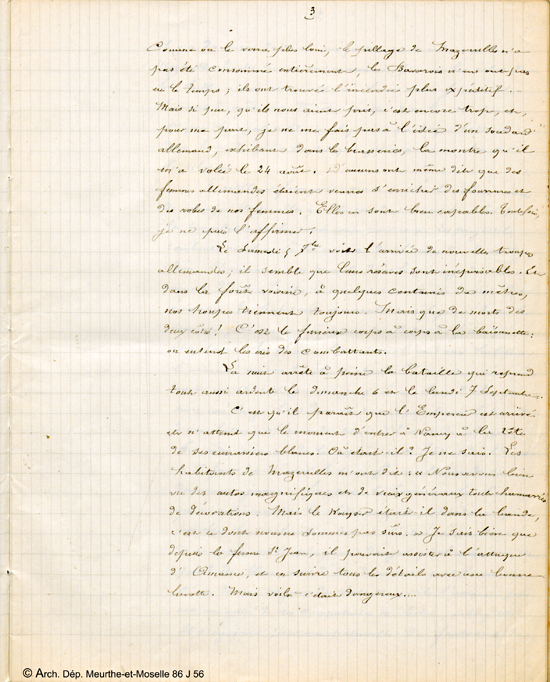 3
Comme on le verra plus loin, le pillage de Mazerulles n'a
pas été consommé entièrement, les Bavarois n'en ont pas
eu le temps ; ils ont trouvé l'incendie plus expéditif.
Mais si peu, qu'ils nous aient pris, c'est encore trop, et,
pour ma part, je ne me fais pas à l'idée d'un soudard
allemand, exhibant dans la brasserie, la montre qu'il
m'a volée le 24 août. D'aucuns ont même dit que des
femmes allemandes étaient venues s'enticher des fourrures et
des robes de nos femmes. Elles en sont bien capables. Toutefois,
je ne puis l'affirmer.
Le Samedi 5 7bre voit l'arrivée de nouvelles troupes
allemandes ; il semble que leurs réserves sont inépuisables. Et
dans la forêt voisine, à quelques centaines de mètres,
nos troupes tiennent toujours. Mais que de morts des
deux côtés ! C'est le furieux corps à corps à la baïonnette ;
on entend les cris des combattants.
La nuit arrête à peine la bataille qui reprend
tout aussi ardente le dimanche 6 et le lundi 7 Septembre.
C'est qu'il paraît que l'Empereur est arrivé
et n'attend que le moment d'entrer à Nancy à la tête
de ses cuirassiers blancs. Où était-il ? Je ne sais. Les
habitants de Mazerulles m'ont dit : « Nous avons bien
vu des autos magnifiques et de vieux généraux tout chamarrés
de décorations. Mais le Kayser était-il dans la bande,
c'est ce dont nous ne sommes pas sûrs. » Je sais bien que
depuis la ferme St Jean, il pouvait assister à l'attaque
d'Amance, et en suivre tous les détails avec une bonne
lunette. Mais voilà c'était dangereux....
© Arch. Dép. Meurthe-et-Moselle 86 J 56